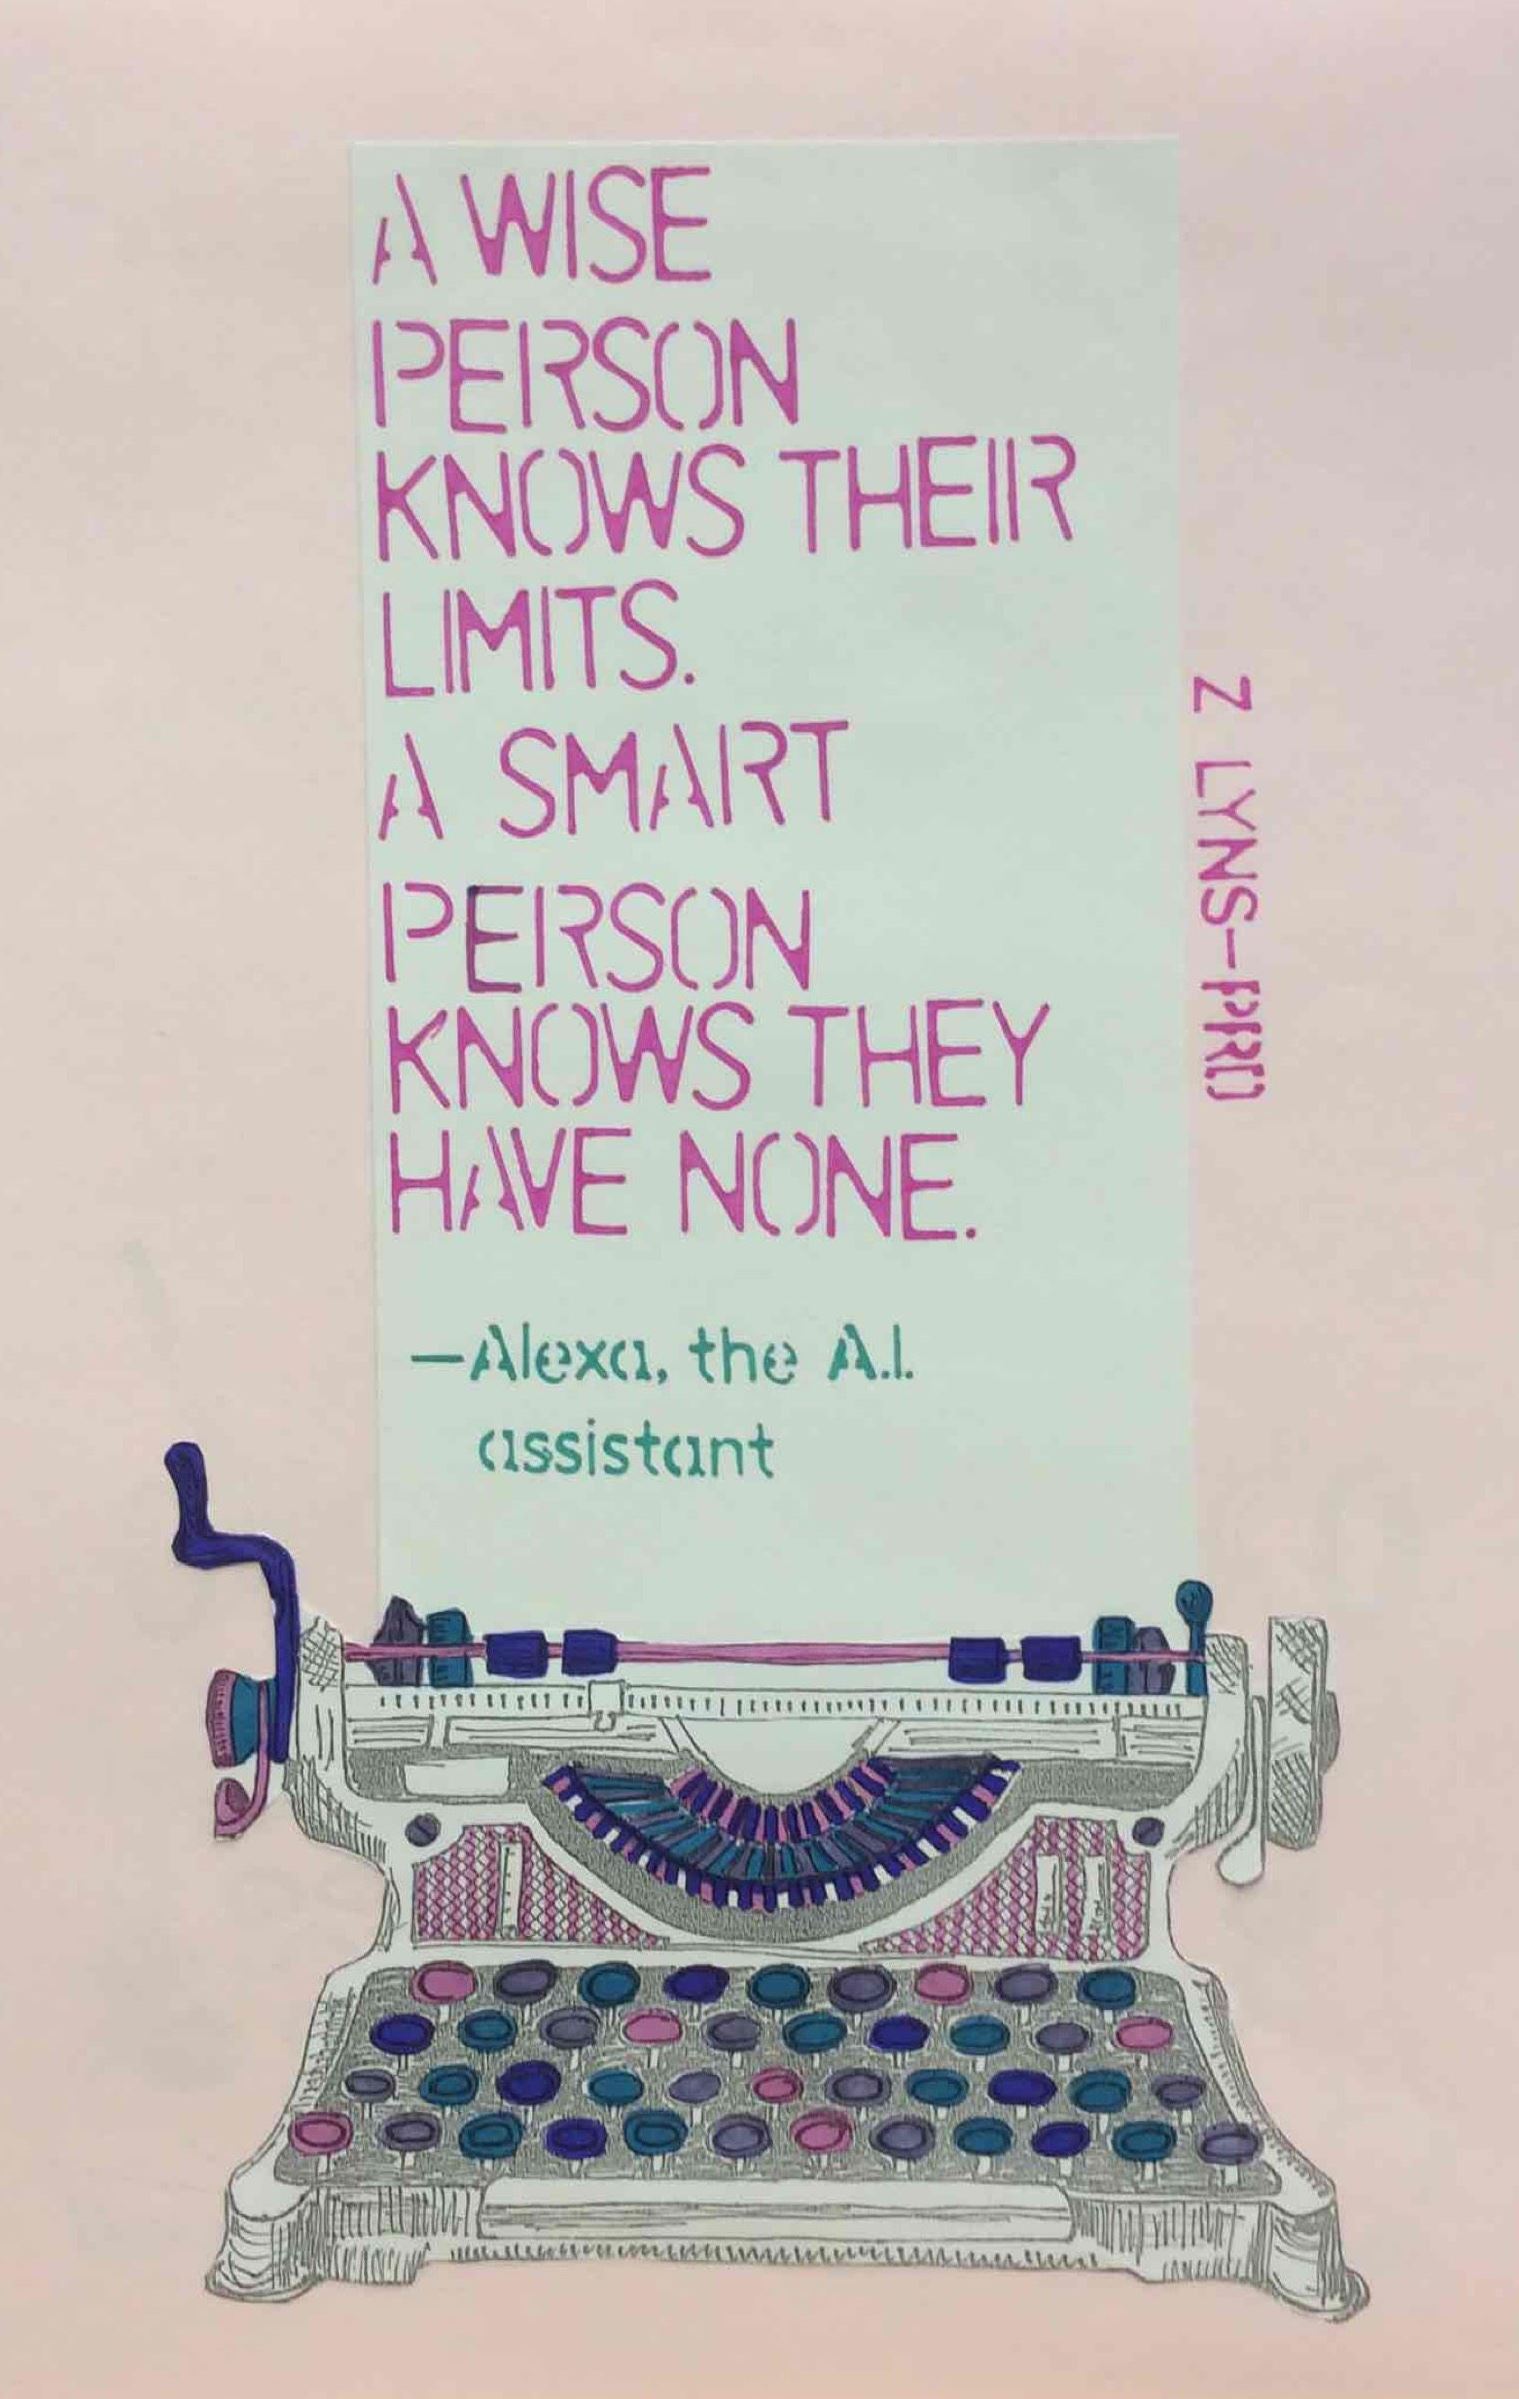 A WISE
PERSON
KNOWS THEIR
LIMITS.
A SMART
PERSON
KNOWS THEY
HAVE NONE.
—Alexa, the A.I.
assistant
Z LYNS-PRO